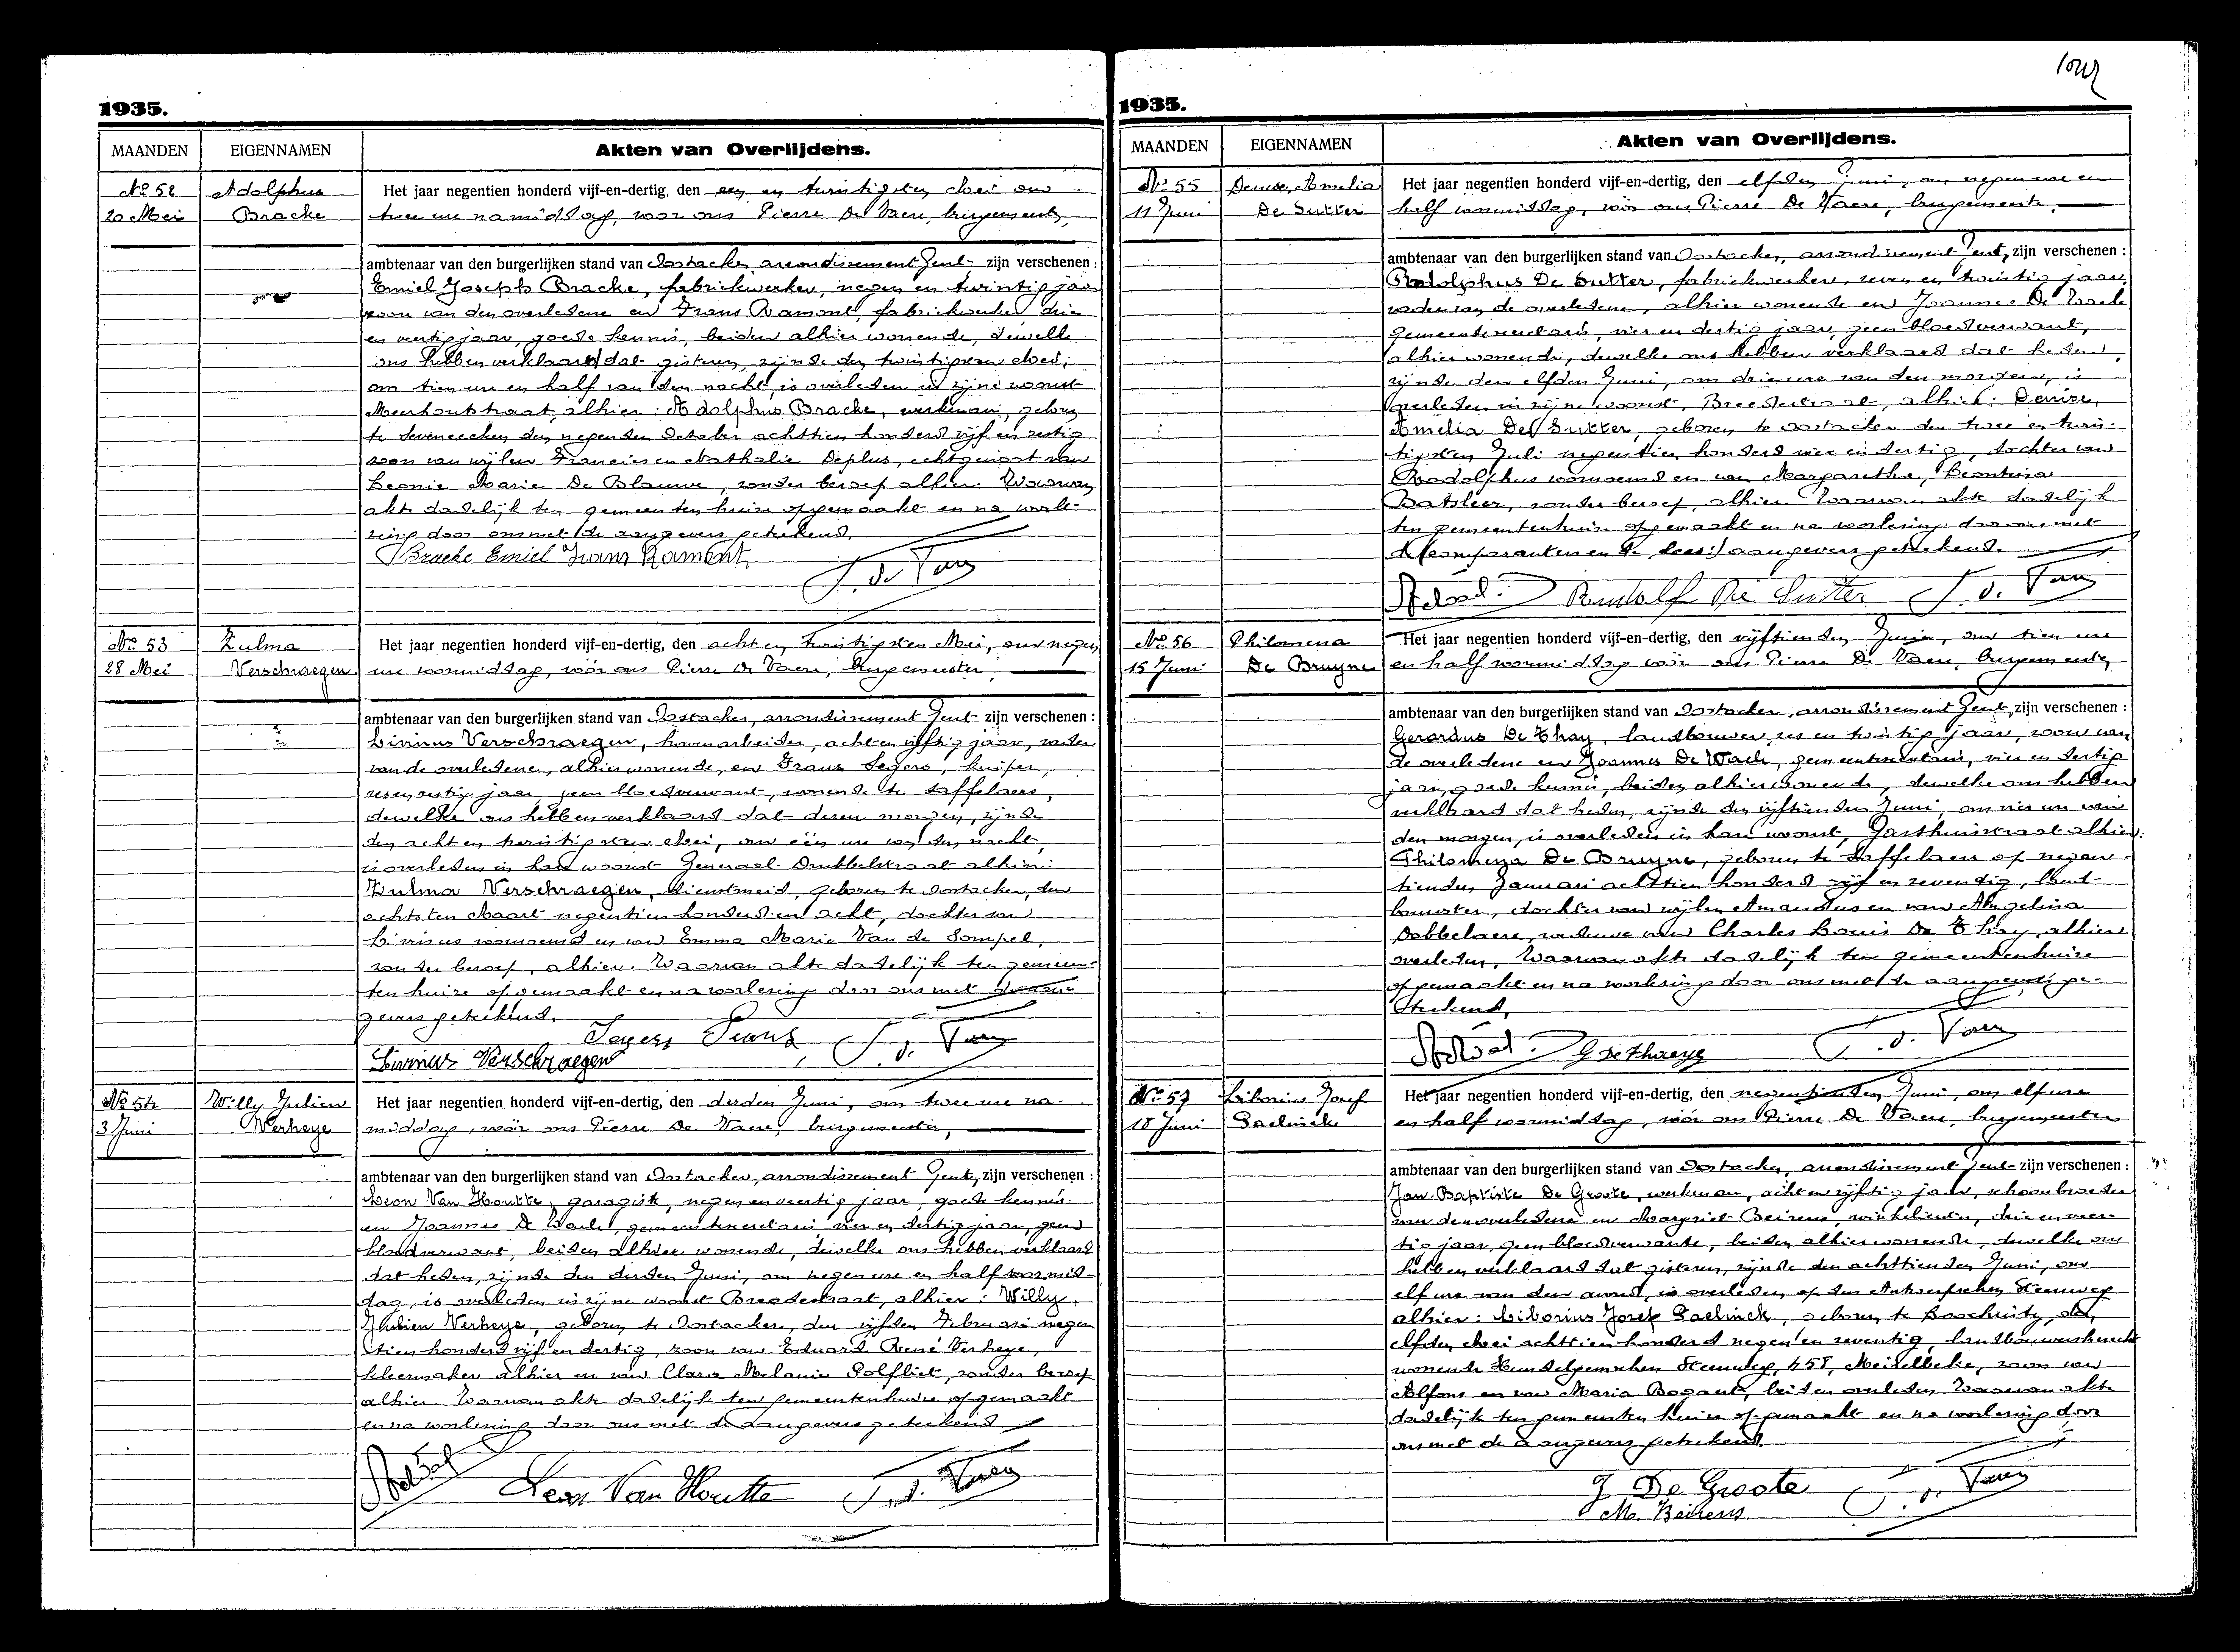 1935.
MAANDEN EIGENNAMEN Akten van Overlijdens.
No 52 Adolphus Het jaar negentien honderd vijf-en-dertig, den een en twintigsten Mei om
20 Mei Bracke twee ure namiddag, voor ons Pierre De Vaere, burgemeester,
ambtenaar van den burgerlijken stand van Oostacker, arrondissement Gent zijn verschenen :
Emiel Joseph Bracke, fabriekwerker, negen en twintig jaar
zoon van den overledene en Frans Rament, fabriekwerker drie
en veertig jaar, goede kennis, beiden alhier wonende, dewelke
ons hebben verklaard dat gisteren, zijnde den twintigsten Mei,
om tien ure en half van den nacht, is overleden in zijne woonst
Meerhoutstraat alhier : Adolphus Bracke, werkman, geboren
te Seveneecken den negenden October achttien honderd vijf en zestig
zoon van wijlen Francies en Nathalie Deplus, echtgenoot van
Leonie Marie De Blauwe, zonder beroep alhier. Waarvan
akte dadelijk ten gemeentenhuize opgemaakt en na voorle-
zing door ons met de aangevers geteekend.
Bracke Emiel Frans Rament
P. De Vaere
No 53 Zulma Het jaar negentien honderd vijf-en-dertig, den acht en twintigsten Mei, om negen
28 Mei Verschraegen ure voormiddag, vóór ons Pierre De Vaere, burgemeester,
ambtenaar van den burgerlijken stand van Oostacker, arrondissement Gent zijn verschenen :
Livinus Verschraegen, havenarbeider, acht en vijftig jaar, vader
van de overledene, alhier wonende, en Frans Segers, kuiper,
zes en zestig jaar, geen bloedverwant, wonende te Saffelaere,
dewelke ons hebben verklaard dat dezen morgen, zijnde
den acht en twintigsten Mei, om één ure van den nacht,
is overleden in hare woonst Generaal Drubbelstraat alhier :
Zulma Verschraegen, dienstmeid, geboren te Oostacker, den
achtsten Maart negentien honderd en acht, dochter van
Livinus voornoemd en van Emma Marie Van de Sompel,
zonder beroep, alhier. Waarvan akte dadelijk ten gemeen-
tenhuize opgemaakt en na voorlezing door ons met de aan-
gevers geteekend.
Segers Frans P. De Vaere
Livinus Verschraegen
No 54 Willy Julien Het jaar negentien honderd vijf-en-dertig, den derden Juni, om twee ure na-
3 Juni Verheye middag, vóór ons Pierre De Vaere, burgemeester,
ambtenaar van den burgerlijken stand van Oostacker, arrondissement Gent, zijn verschenen :
Leon Van Houtte, garagist, negen en veertig jaar, goede kennis
en Joannes De Waele, gemeentesecretaris, vier en dertig jaar, geen
bloedverwant, beiden alhier wonende, dewelke ons hebben verklaard
dat heden, zijnde den derden Juni, om negen ure en half voormid-
dag, is overleden in zijne woonst Breedestraat, alhier : Willy,
Julien Verheye, geboren te Oostacker, den vijfden Februari negen
tien honderd vijf en dertig, zoon van Eduard René Verheye,
kleermaker alhier en van Clara Melanie Polfliet, zonder beroep
alhier. Waarvan akte dadelijk ten gemeentenhuize opgemaakt
en na voorlezing door ons met de aangevers geteekend
Leon Van Houtte P. De Vaere
1935.
MAANDEN EIGENNAMEN Akten van Overlijdens.
No 55 Denise, Amelia Het jaar negentien honderd vijf-en-dertig, den elfden Juni, om negen ure en
11 Juni De Sutter half voormiddag, vóór ons Pierre De Vaere, burgemeester,
ambtenaar van den burgerlijken stand van Oostacker, arrondissement Gent, zijn verschenen :
Rodolphus De Sutter, fabriekwerker, zeven en twintig jaar,
vader van de overledene, alhier wonende en Joannes De Waele
gemeentesecretaris, vier en dertig jaar, geen bloedverwant,
alhier wonende, dewelke ons hebben verklaard dat heden,
zijnde den elfden Juni, om drie ure van den morgen, is
overleden in zijne woonst, Breedestraat, alhier : Denise,
Amelia De Sutter, geboren te Oostacker den twee en twin-
tigsten Juli negentien honderd vier en dertig, dochter van
Rodolphus voornoemd en van Margaretha, Leontina
Batsleer, zonder beroep, alhier. Waarvan akte dadelijk
ten gemeentenhuize opgemaakt en na voorlezing door ons met
de (comparanten en de, lees:) aangevers geteekend.
Rudolf De Sutter P. De Vaere
No 56 Philomena Het jaar negentien honderd vijf-en-dertig, den vijftienden Juni, om tien ure
15 Juni De Bruyne en half voormiddag vóór ons Pierre De Vaere, burgemeester,
ambtenaar van den burgerlijken stand van Oostacker, arrondissement Gent, zijn verschenen :
Gerardus De Thay, landbouwer, zes en twintig jaar, zoon van
de overledene en Joannes De Waele, gemeentesecretaris, vier en dertig
jaar, goede kennis, beiden alhier wonende, dewelke ons hebben
verklaard dat heden, zijnde den vijftienden Juni, om vier ure van
den morgen, is overleden in hare woonst, Gasthuisstraat alhier:
Philomena De Bruyne, geboren te Saffelaere op negen-
tienden Januari achttien honderd vijf en zeventig, land-
bouwster, dochter van wijlen Amandus en van Angelina
Dobbelaere, weduwe van Charles Louis De Thay, alhier
overleden. Waarvan akte dadelijk ten gemeentenhuize
opgemaakt en na voorlezing door ons met de aangevers ge-
teekend.
P. De Vaere
No 57 Liborius Josef Het jaar negentien honderd vijf-en-dertig, den negentienden Juni, om elf ure
18 Juni Paelinck en half voormiddag, vóór ons Pierre De Vaere, burgemeester
ambtenaar van den burgerlijken stand van Oostacker, arrondissement Gent zijn verschenen :
Jan-Baptiste De Groote, werkman, acht en vijftig jaar, schoonbroeder
van den overledene en Margriet Beirens, winkelierster, drie en veer-
tig jaar, geen bloedverwante, beiden alhier wonende, dewelke ons
hebben verklaard dat gisteren, zijnde den achttienden Juni, om
elf ure van den avond, is overleden op den Antwerpschen Steenweg
alhier : Liborius Josef Paelinck, geboren te Loochristy, den
elfden Mei achttien honderd negen en zeventig, landbouwersknecht
wonende Hundelgemschen Steenweg, 458, Meirelbeke, zoon van
Alfons en van Maria Bogaert, beiden overleden. Waarvan akte
dadelijk ten gemeentenhuize opgemaakt en na voorlezing door
ons met de aangevers geteekend.
J De Groote P. De Vaere
M. Beirens